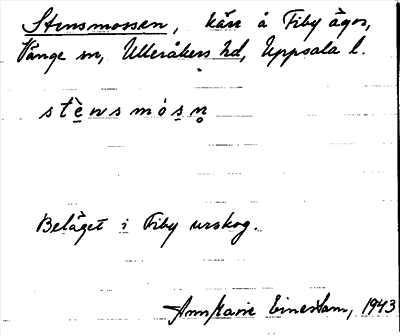 Stensmossen, kärr å Fiby ägor,
Vänge sn, Ulleråkers hd, Uppsala l.
stè̱nsmòs̱n̥
Beläget i Fiby urskog.
AnnMarie Einerstam, 1943